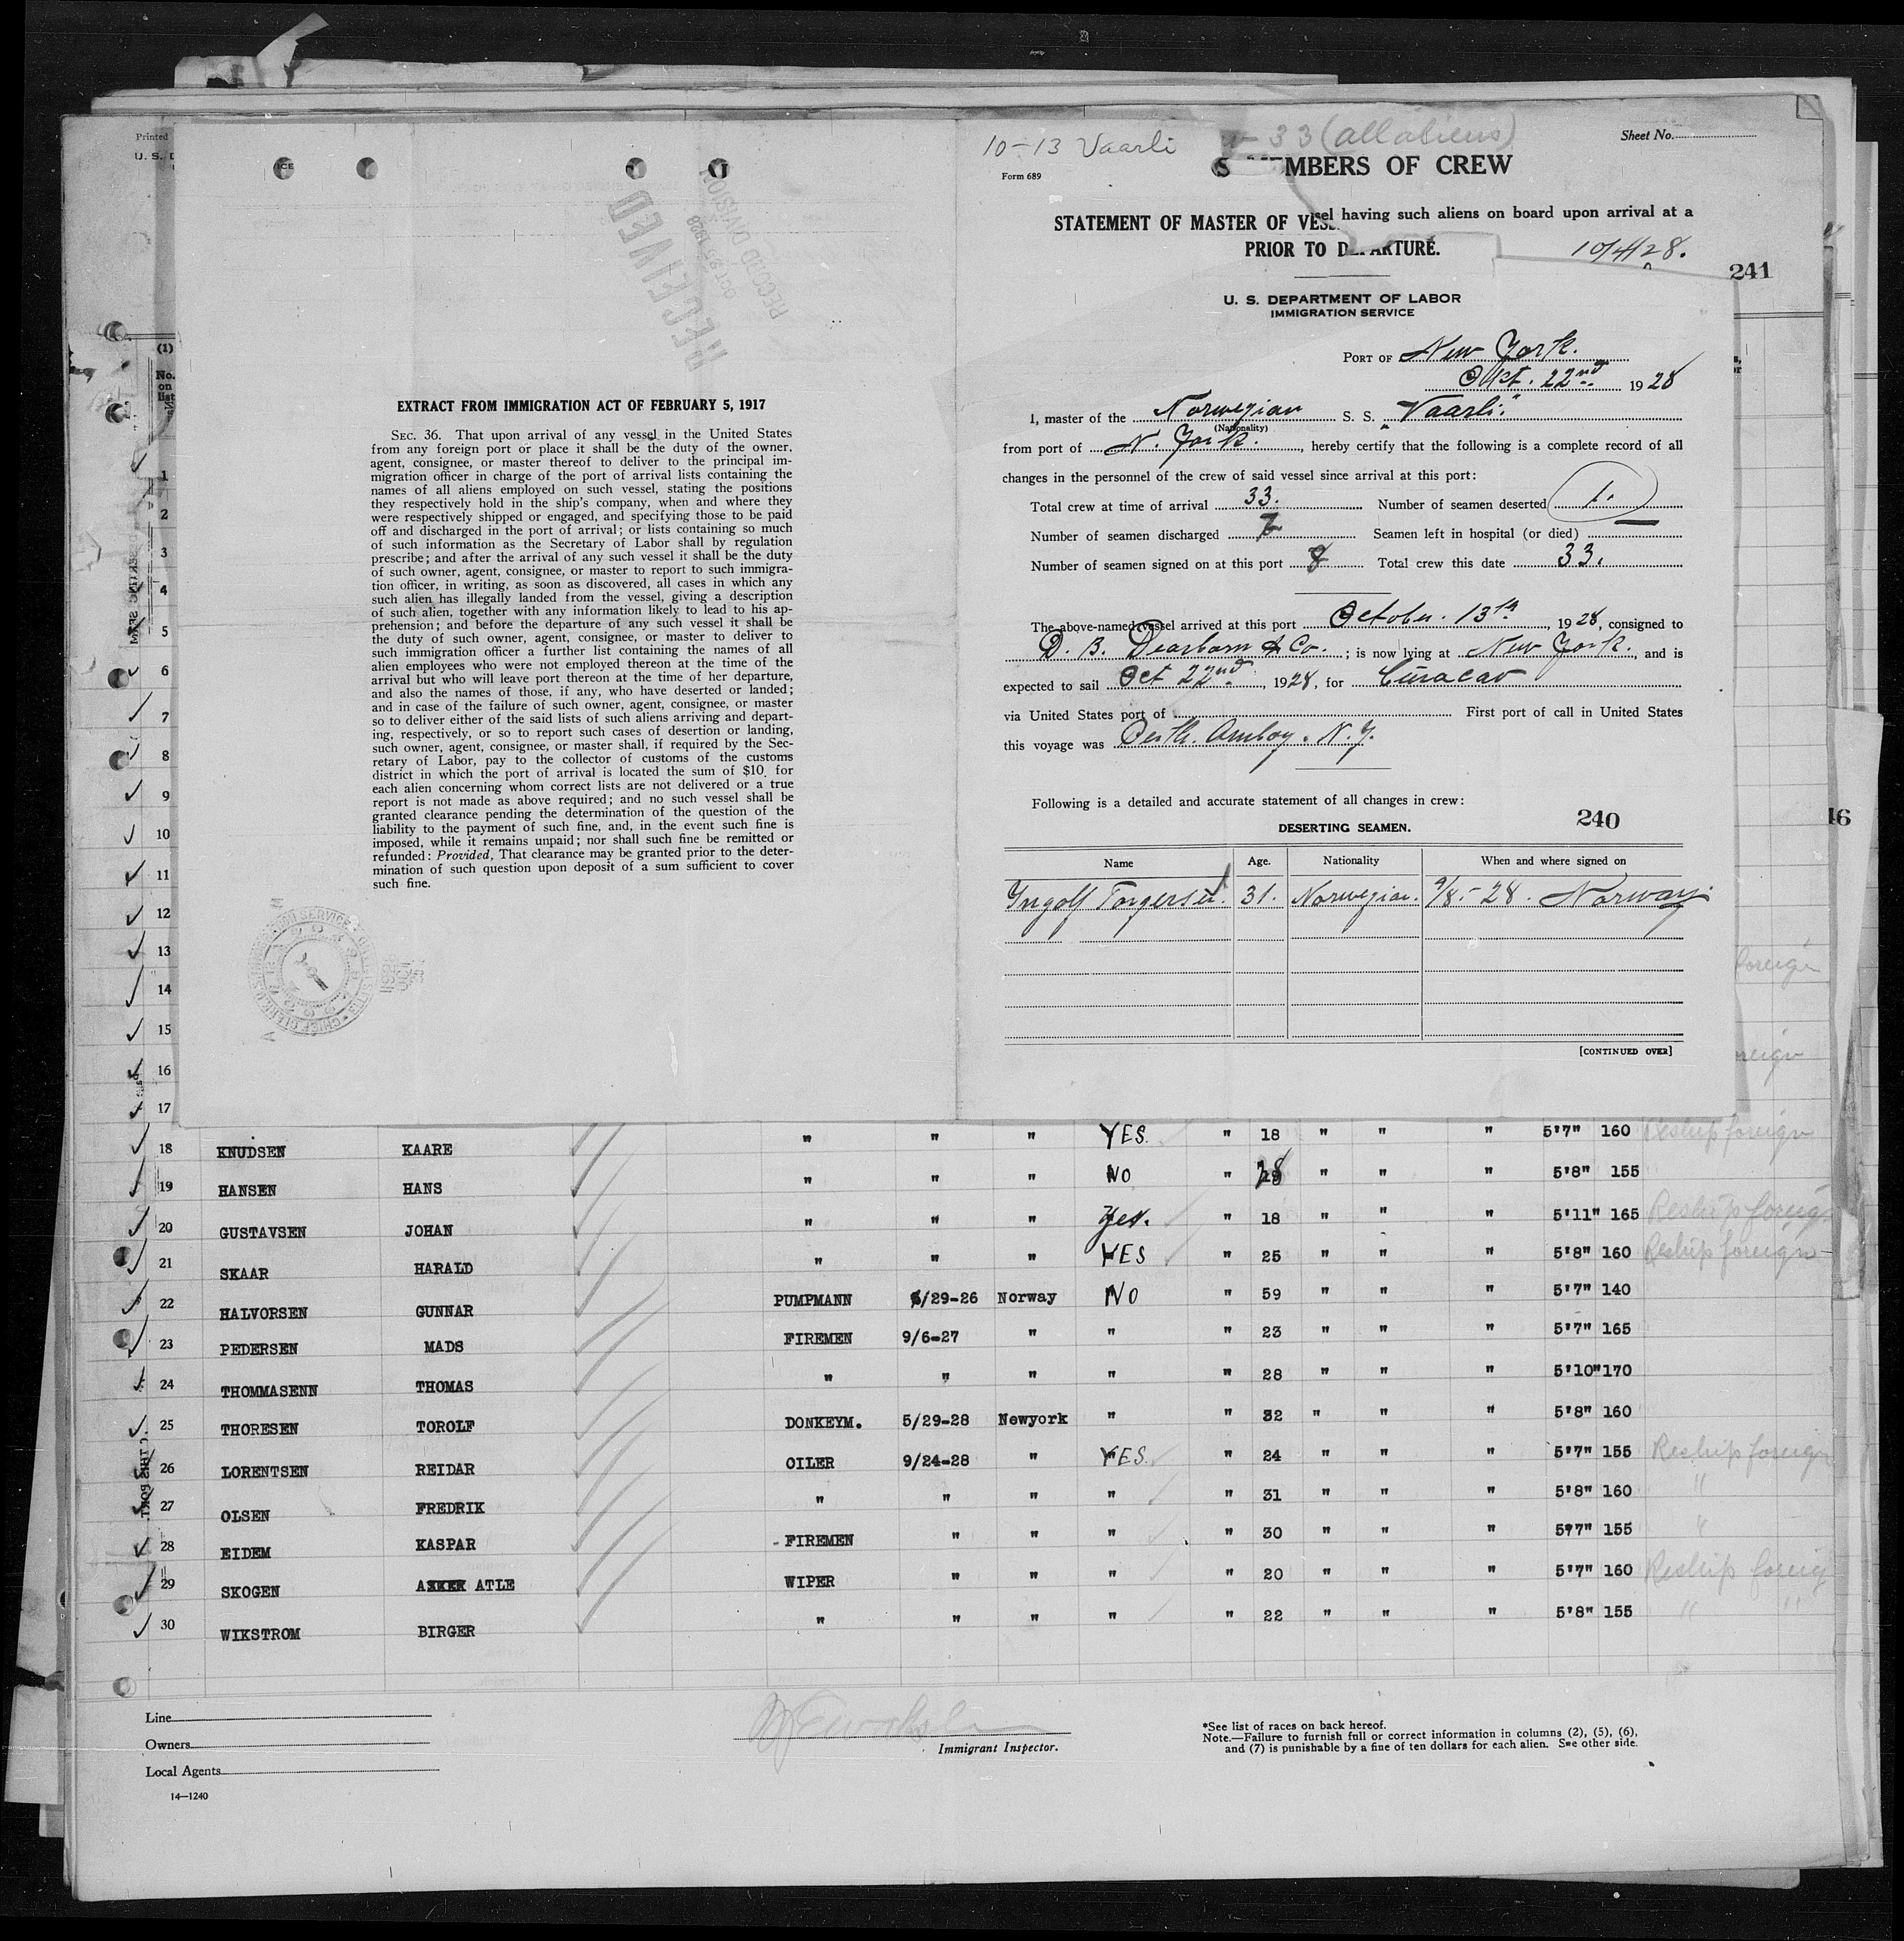 Printed
U. S. D
ICE
RECEIVED
OCT 25 1928
RECORD DIVISION
(1)
No.
on
list
EXTRACT FROM IMMIGRATION ACT OF FEBRUARY 5, 1917
SEC. 36. That upon arrival of any vessel in the United States
from any foreign port or place it shall be the duty of the owner,
agent, consignee, or master thereof to deliver to the principal im-
migration officer in charge of the port of arrival lists containing the
names of all aliens employed on such vessel, stating the positions
they respectively hold in the ship's company, when and where they
were respectively shipped or engaged, and specifying those to be paid
off and discharged in the port of arrival; or lists containing so much
of such information as the Secretary of Labor shall by regulation
prescribe; and after the arrival of any such vessel it shall be the duty
of such owner, agent, consignee, or master to report to such immigra-
tion officer, in writing, as soon as discovered, all cases in which any
such alien has illegally landed from the vessel, giving a description
of such alien, together with any information likely to lead to his ap-
prehension; and before the departure of any such vessel it shall be
the duty of such owner, agent, consignee, or master to deliver to
such immigration officer a further list containing the names of all
alien employees who were not employed thereon at the time of the
arrival but who will leave port thereon at the time of her departure,
and also the names of those, if any, who have deserted or landed;
and in case of the failure of such owner, agent, consignee, or master
so to deliver either of the said lists of such aliens arriving and depart-
ing, respectively, or so to report such cases of desertion or landing,
such owner, agent, consignee, or master shall, if required by the Sec-
retary of Labor, pay to the collector of customs of the customs
district in which the port of arrival is located the sum of $10 for
each alien concerning whom correct lists are not delivered or a true
report is not made as above required; and no such vessel shall be
granted clearance pending the determination of the question of the
liability to the payment of such fine, and, in the event such fine is
imposed, while it remains unpaid; nor shall such fine be remitted or
refunded: Provided, That clearance may be granted prior to the deter-
mination of such question upon deposit of a sum sufficient to cover
such fine.
10-13 Vaarli
33 (all aliens)
Sheet No.
Form 689
S MBERS OF CREW
sel having such aliens on board upon arrival at a
STATEMENT OF MASTER OF VES
PRIOR TO DEPARTURE.
10/4/28.
241
U. S. DEPARTMENT OF LABOR
IMMIGRATION SERVICE
PORT OF New York.
Okt. 22nd 1928
I, master of the Norwegian S. S. "Vaarli"
(Nationality)
from port of N. York., hereby certify that the following is a complete record of all
changes in the personnel of the crew of said vessel since arrival at this port:
Total crew at time of arrival 33. Number of seamen deserted 1.
Number of seamen discharged 7 Seamen left in hospital (or died) —
Number of seamen signed on at this port 8 Total crew this date 33.
The above-named vessel arrived at this port October. 13th, 1928, consigned to
D. B. Dearborn & Co.; is now lying at New York., and is
expected to sail Oct 22nd, 1928, for Curacao
via United States port of First port of call in United States
this voyage was Perth. Amboy. N. Y.
Following is a detailed and accurate statement of all changes in crew:
DESERTING SEAMEN. 240
Name Age. Nationality When and where signed on
Ingolf Torgersen. 31. Norwegian. 9/8.-28. Norway.
[CONTINUED OVER]
16
foreign
1
2
3
4
5
6
7
8
9
10
11
12
13
14
15
16
17
18 KNUDSEN KAARE " " " YES " 18 " " " 5'7" 160 Reship foreign
19 HANSEN HANS " " " NO " 28 " " " 5'8" 155
20 GUSTAVSEN JOHAN " " " Yes. " 18 " " " 5'11" 165 Reship foreig
21 SKAAR HARALD " " " YES " 25 " " " 5'8" 160 Reship foreign
22 HALVORSEN GUNNAR PUMPMANN 6/29-26 Norway NO " 59 " " " 5'7" 140
23 PEDERSEN MADS FIREMEN 9/6-27 " " " 23 " " " 5'7" 165
24 THOMMASENN THOMAS " " " " " 28 " " " 5'10" 170
25 THORESEN TOROLF DONKEYM. 5/29-28 Newyork " " 32 " " " 5'8" 160
26 LORENTSEN REIDAR OILER 9/24-28 " YES " 24 " " " 5'7" 155 Reship foreign
27 OLSEN FREDRIK " " " " " 31 " " " 5'8" 160 "
28 EIDEM KASPAR - FIREMEN " " " " 30 " " " 5'7" 155 "
29 SKOGEN ATLE WIPER " " " " 20 " " " 5'7" 160 Reship foreig
30 WIKSTROM BIRGER " " " " " 22 " " " 5'8" 155 " "
Line
Owners
Local Agents
14—1240
Immigrant Inspector.
*See list of races on back hereof.
Note.—Failure to furnish full or correct information in columns (2), (5), (6),
and (7) is punishable by a fine of ten dollars for each alien. See other side.